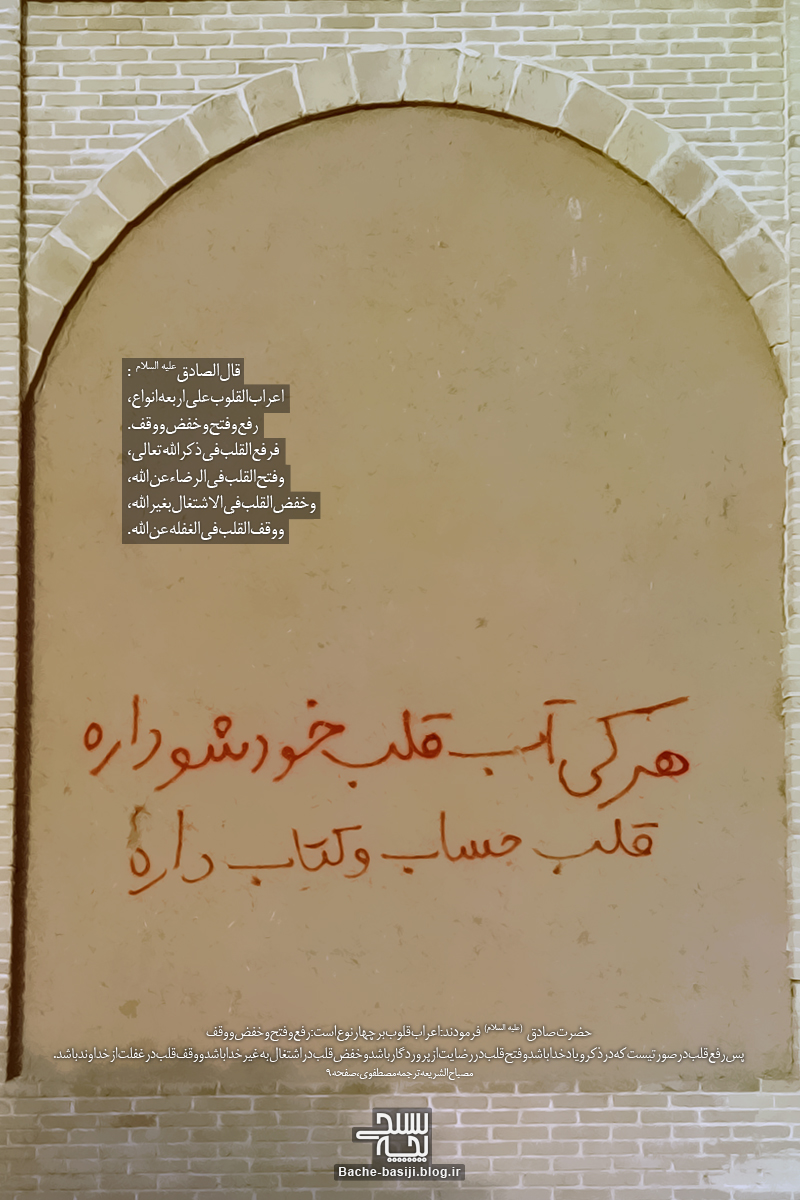 قال الصادق علیه السلام :
اعراب القلوب علی اربعه انواع،
رفع و فتح و خفض و وقف.
فرفع القلب فی ذکر الله تعالی،
و فتح القلب فی الرضاء عن الله،
و خفض القلب فی الاشتغال بغیر الله،
و وقف القلب فی الغفله عن الله.
هر کی آب قلب خودشو داره
قلب حساب و کتاب داره
حضرت صادق (علیه السلام) فرمودند: اعراب قلوب بر چهار نوع است: رفع و فتح و خفض و وقف
پس رفع قلب در صورتیست که در ذکر و یاد خدا باشد و فتح قلب در رضایت از پروردگار باشد و خفض قلب در اشتغال به غیر خدا باشد و وقف قلب در غفلت از خداوند باشد.
مصباح الشریعه ترجمه مصطفوی، صفحه ۹
بچه بسیجی
Bache-basiji.blog.ir